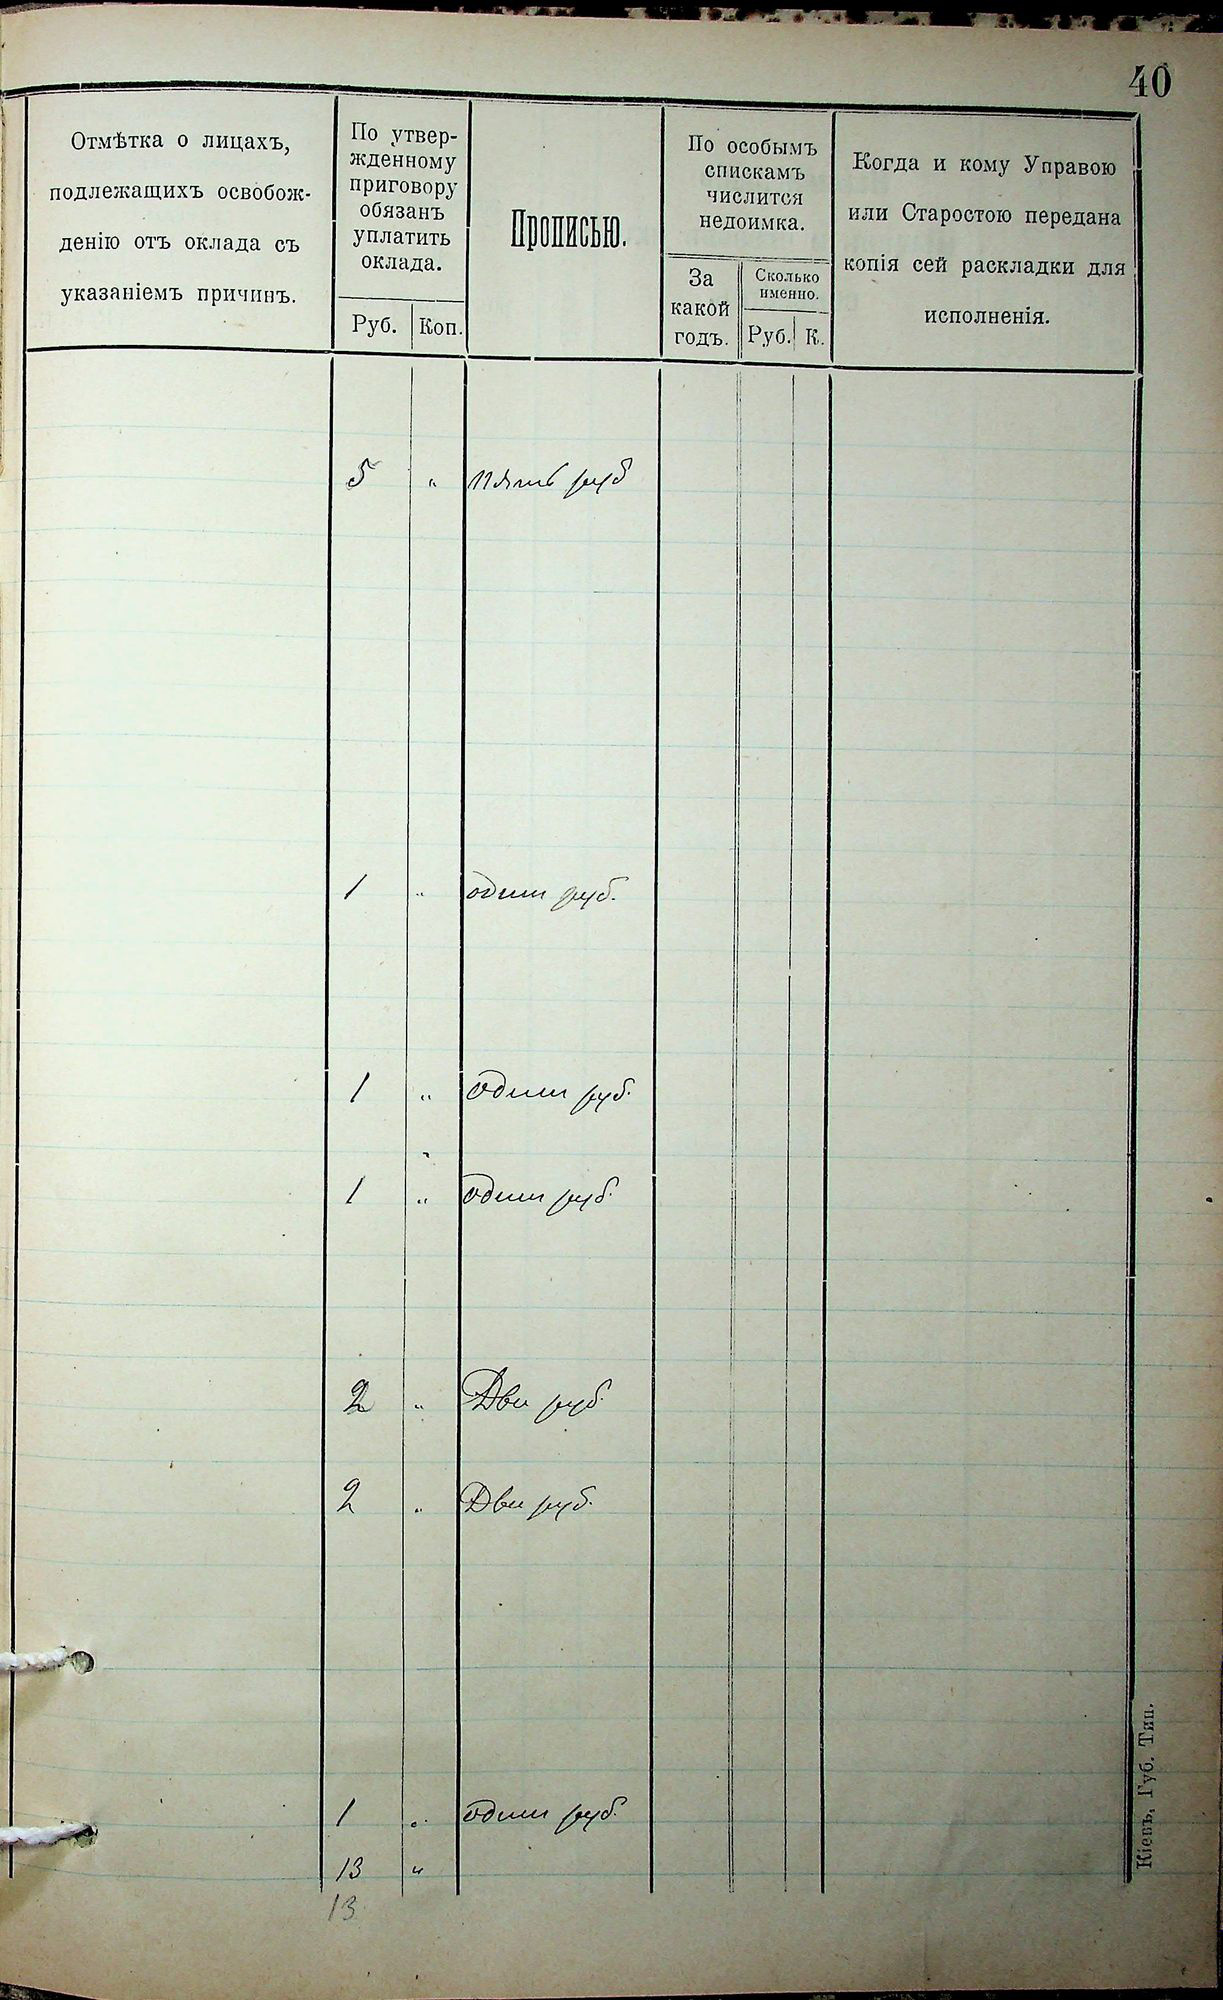 40
Отмѣтка о лицахъ,
подлежащихъ освобож-
денію отъ оклада съ
указаніемъ причинъ.
По утвер-
жденному
приговору
обязанъ
уплатить
оклада.
Руб. Коп.
Прописью.
По особымъ
спискамъ
числится
недоимка.
За
какой
годъ.
Сколько
именно.
Руб. К.
Когда и кому Управою
или Старостою передана
копія сей раскладки для
исполненія.
5 " пять руб
1 " один руб.
1 " один руб.
1 " один руб.
2 " Две руб.
2 " Две руб.
1 " один руб.
13 "
13
Кіевъ, Губ. Тип.